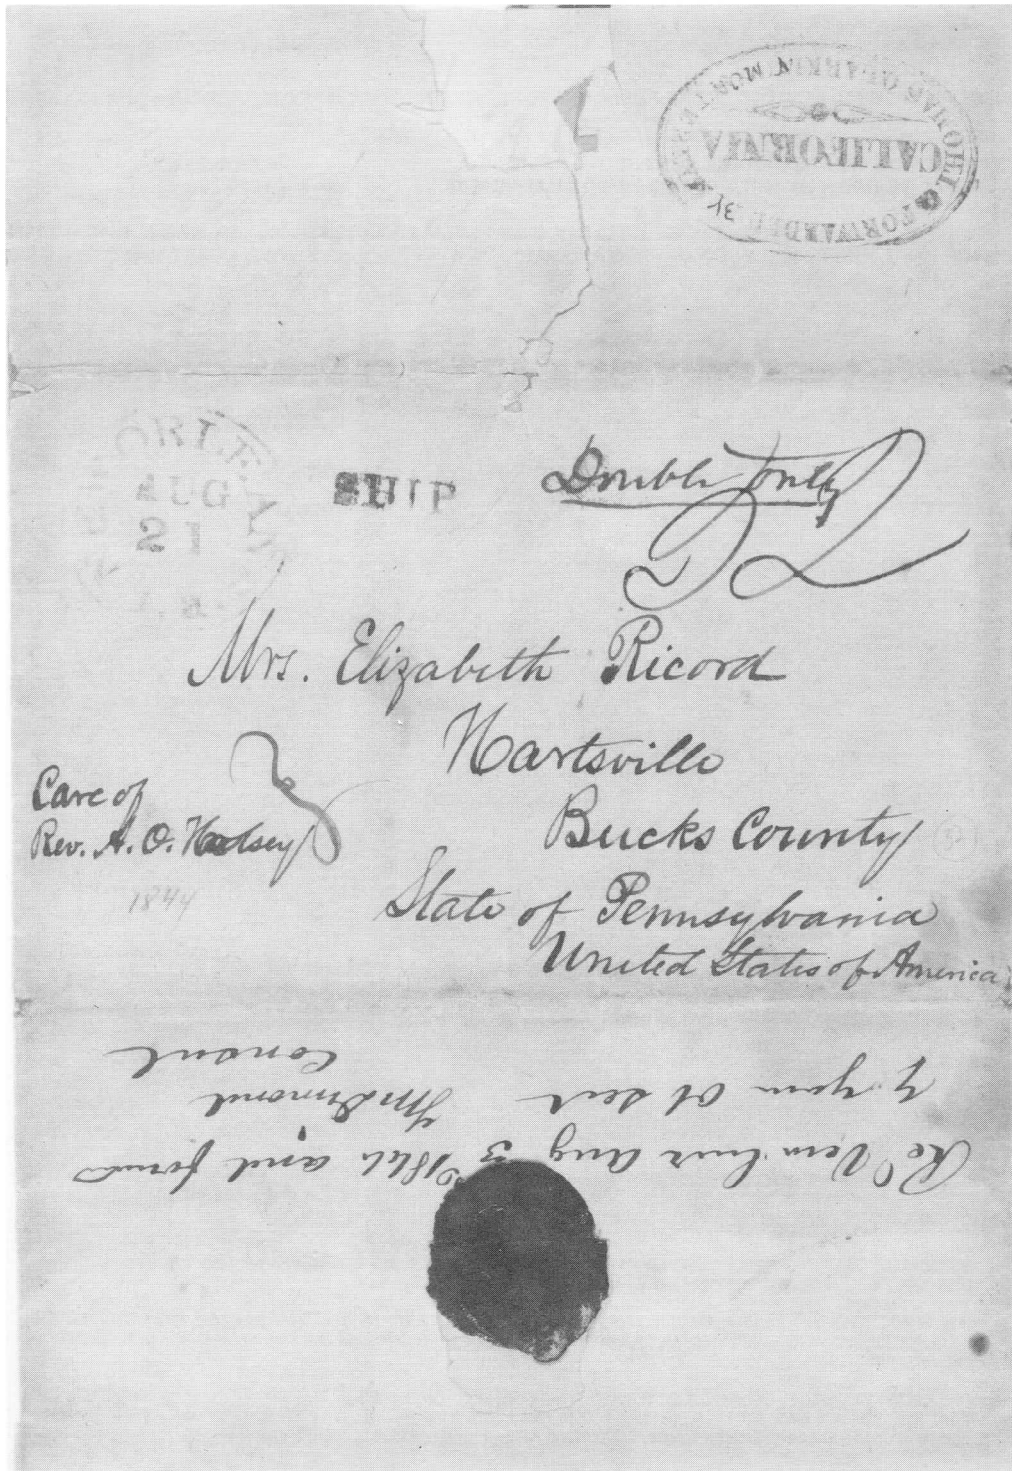 FORWARDED BY
THOMAS O. LARKIN MONTEREY
CALIFORNIA
AUG
SHIP
Double
Mrs. Elizabeth Ricord
Hartsville
Bucks County
State of Pennsylvania
United States of America
Care of
Rev. A. O. Halsey
1844
Recd Vera Cruz Aug 3 1844 and forwd
by your Ob Sert
F M Dimond
Consul